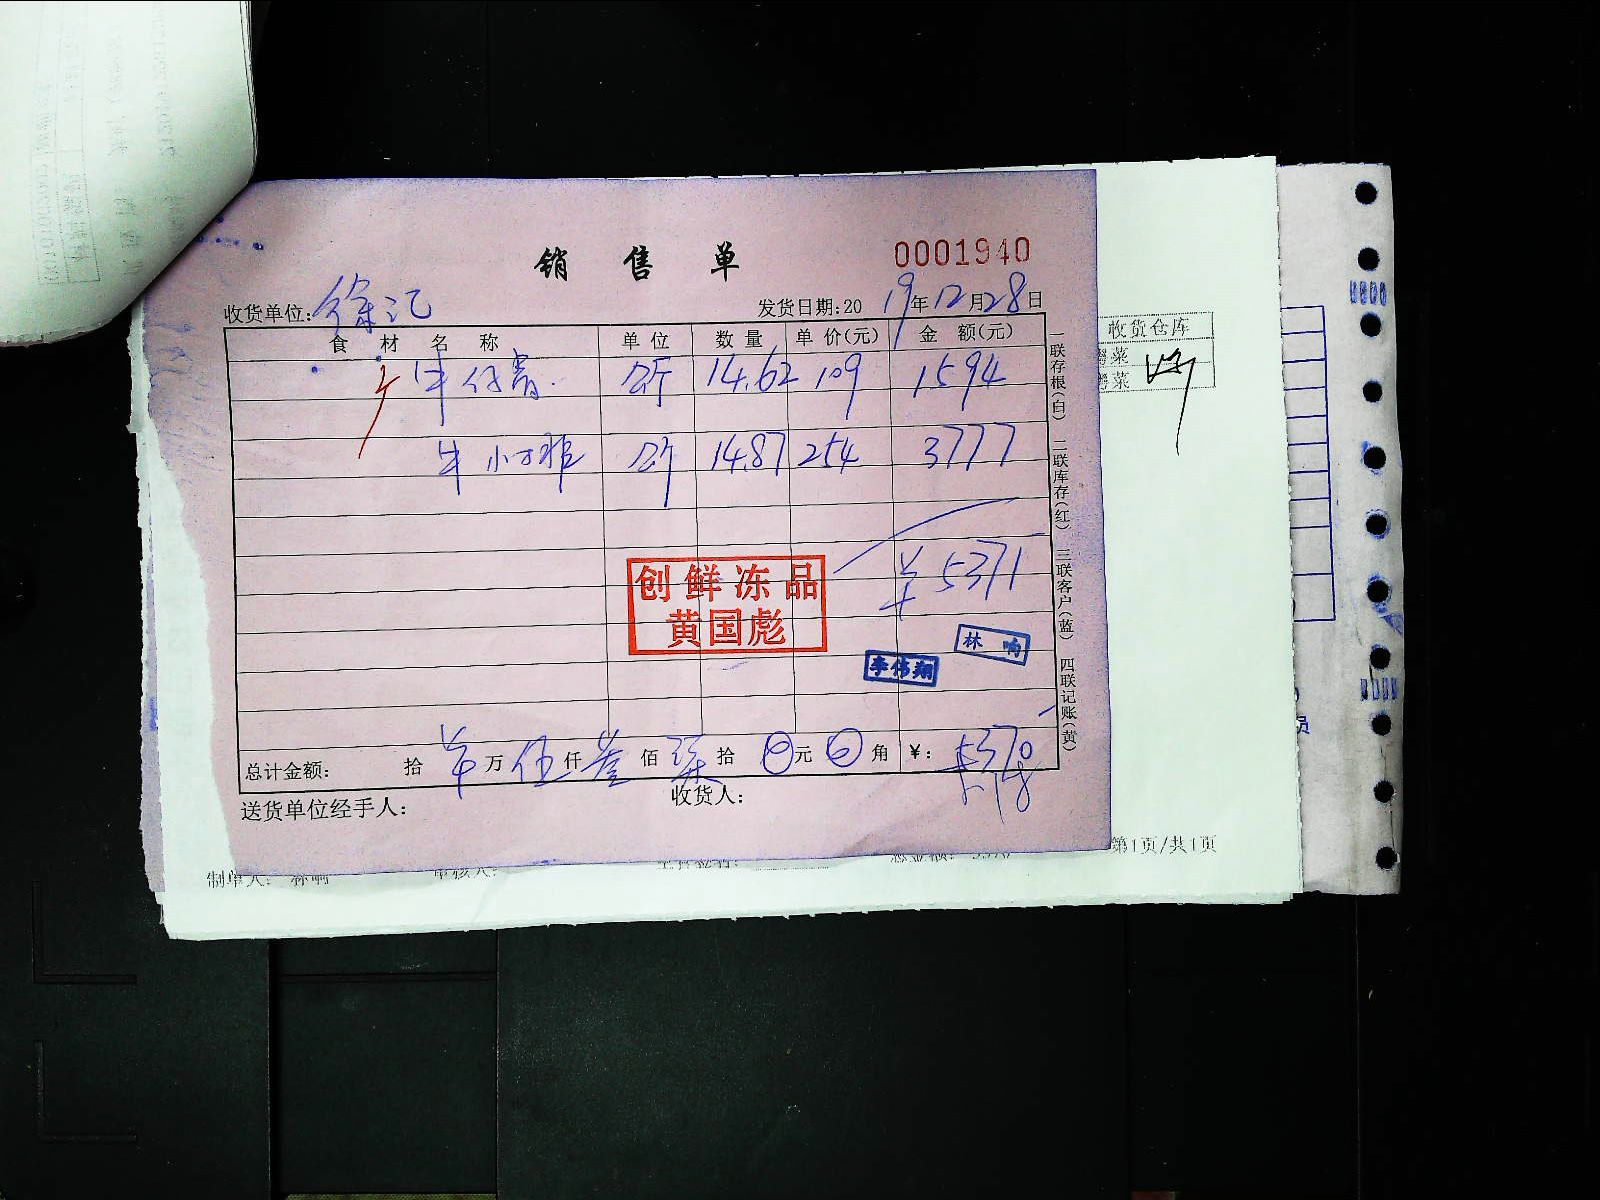 销售单
0001940
收货单位：徐记 发货日期:2019年12月28日
食材名称 单位 数量 单价(元) 金额(元)
牛仔骨 公斤 14.62 109 1594
牛小排 公斤 14.87 254 3777
¥5371
创鲜冻品
黄国彪
林响
李伟翔
总计金额： 拾 万伍仟叁佰柒拾0元0角 ¥：5370
送货单位经手人： 收货人：
一联存根(白) 二联库存(红) 三联客户(蓝) 四联记账(黄)
收货仓库
粤菜
粤菜
制单人：林响
第1页/共1页